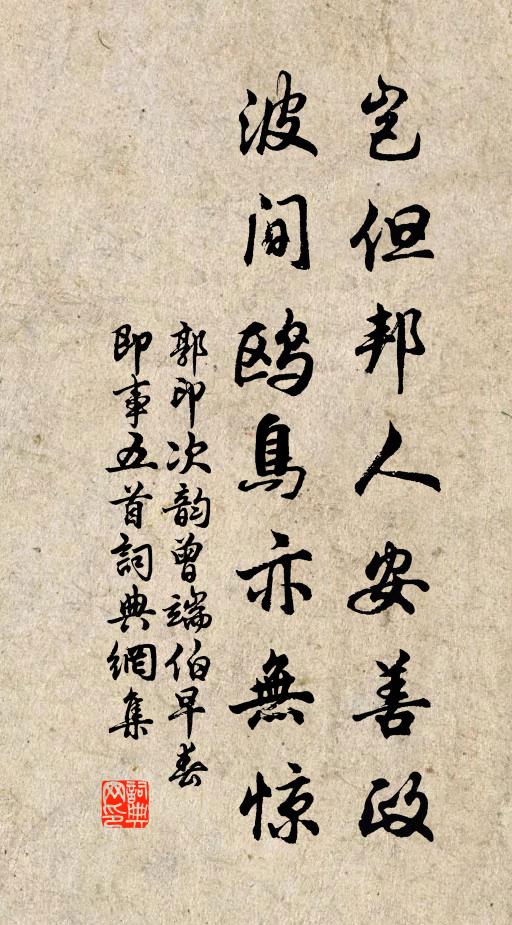 岂但邦人安善政
波间鸥鳥亦無惊
郭印次韵曾端伯早春
即事五首詞典網集
詞典网印